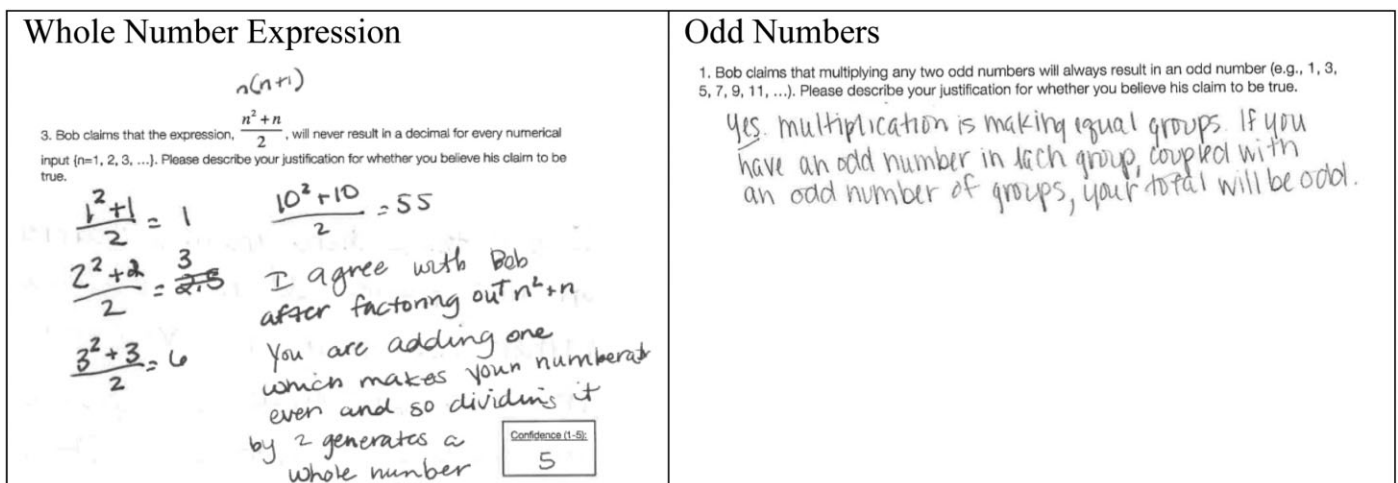 Whole Number Expression
n(n+1)
3. Bob claims that the expression, (n² + n)/2, will never result in a decimal for every numerical
input {n=1, 2, 3, ...}. Please describe your justification for whether you believe his claim to be
true.
(1²+1)/2 = 1
(2²+2)/2 = 3 2.5
(3²+3)/2 = 6
(10²+10)/2 = 55
I agree with Bob
after factoring out n²+n
You are adding one
which makes your numberat
even and so dividing it
by 2 generates a
whole number
Confidence (1-5):
5
Odd Numbers
1. Bob claims that multiplying any two odd numbers will always result in an odd number (e.g., 1, 3,
5, 7, 9, 11, ...). Please describe your justification for whether you believe his claim to be true.
Yes. multiplication is making equal groups. If you
have an odd number in each group, coupled with
an odd number of groups, your total will be odd.